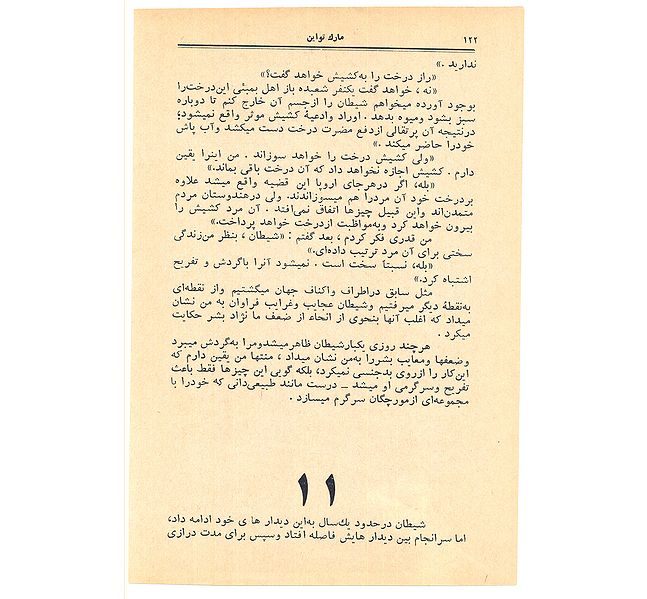 ۱۲۲
مارك تواین
ندارید .»
«راز درخت را به‌کشیش خواهد گفت؟»
«نه ، خواهد گفت یکنفر شعبده باز اهل بمبئی این‌درخت‌را
بوجود آورده میخواهم شیطان را ازجسم آن خارج کنم تا دوباره
سبز بشود ومیوه بدهد . اوراد وادعیهٔ کشیش موثر واقع نمیشود؛
درنتیجه آن پرتقالی ازدفع مضرت درخت دست میکشد وآب پاش
خودرا حاضر میکند .»
«ولی کشیش درخت را خواهد سوزاند . من اینرا یقین
دارم . کشیش اجازه نخواهد داد که آن درخت باقی بماند.»
«بله، اگر درهرجای اروپا این قضیه واقع میشد علاوه
بردرخت خود آن مردرا هم میسوزاندند. ولی درهندوستان مردم
متمدن‌اند واین قبیل چیزها اتفاق نمی‌افتد . آن مرد کشیش را
بیرون خواهد کرد وبه‌مواظبت ازدرخت خواهد پرداخت.»
من قدری فکر کردم ، بعد گفتم : «شیطان ، بنظر من‌زندگی
سختی برای آن مرد ترتیب داده‌ای.»
«بله، نسبتاً سخت است . نمیشود آنرا باگردش و تفریح
اشتباه کرد.»
مثل سابق دراطراف واکناف جهان میگشتیم واز نقطه‌ای
به‌نقطهٔ دیگر میرفتیم وشیطان عجایب وغرایب فراوان به من نشان
میداد که اغلب آنها بنحوی از انحاء از ضعف ما نژاد بشر حکایت
میکرد .
هرچند روزی یکبارشیطان ظاهرمیشدومرا به‌گردش میبرد
وضعفها ومعایب بشررا به‌من نشان میداد ، منتها من یقین دارم که
این‌کار را ازروی بدجنسی نمیکرد، بلکه گویی این چیزها فقط باعث
تفریح وسرگرمی او میشد ــ درست مانند طبیعی‌دانی که خودرا با
مجموعه‌ای ازمورچگان سرگرم میسازد .
۱۱
شیطان درحدود یك‌سال به‌این دیدار ها ی خود ادامه داد،
اما سرانجام بین دیدار هایش فاصله افتاد وسپس برای مدت درازی